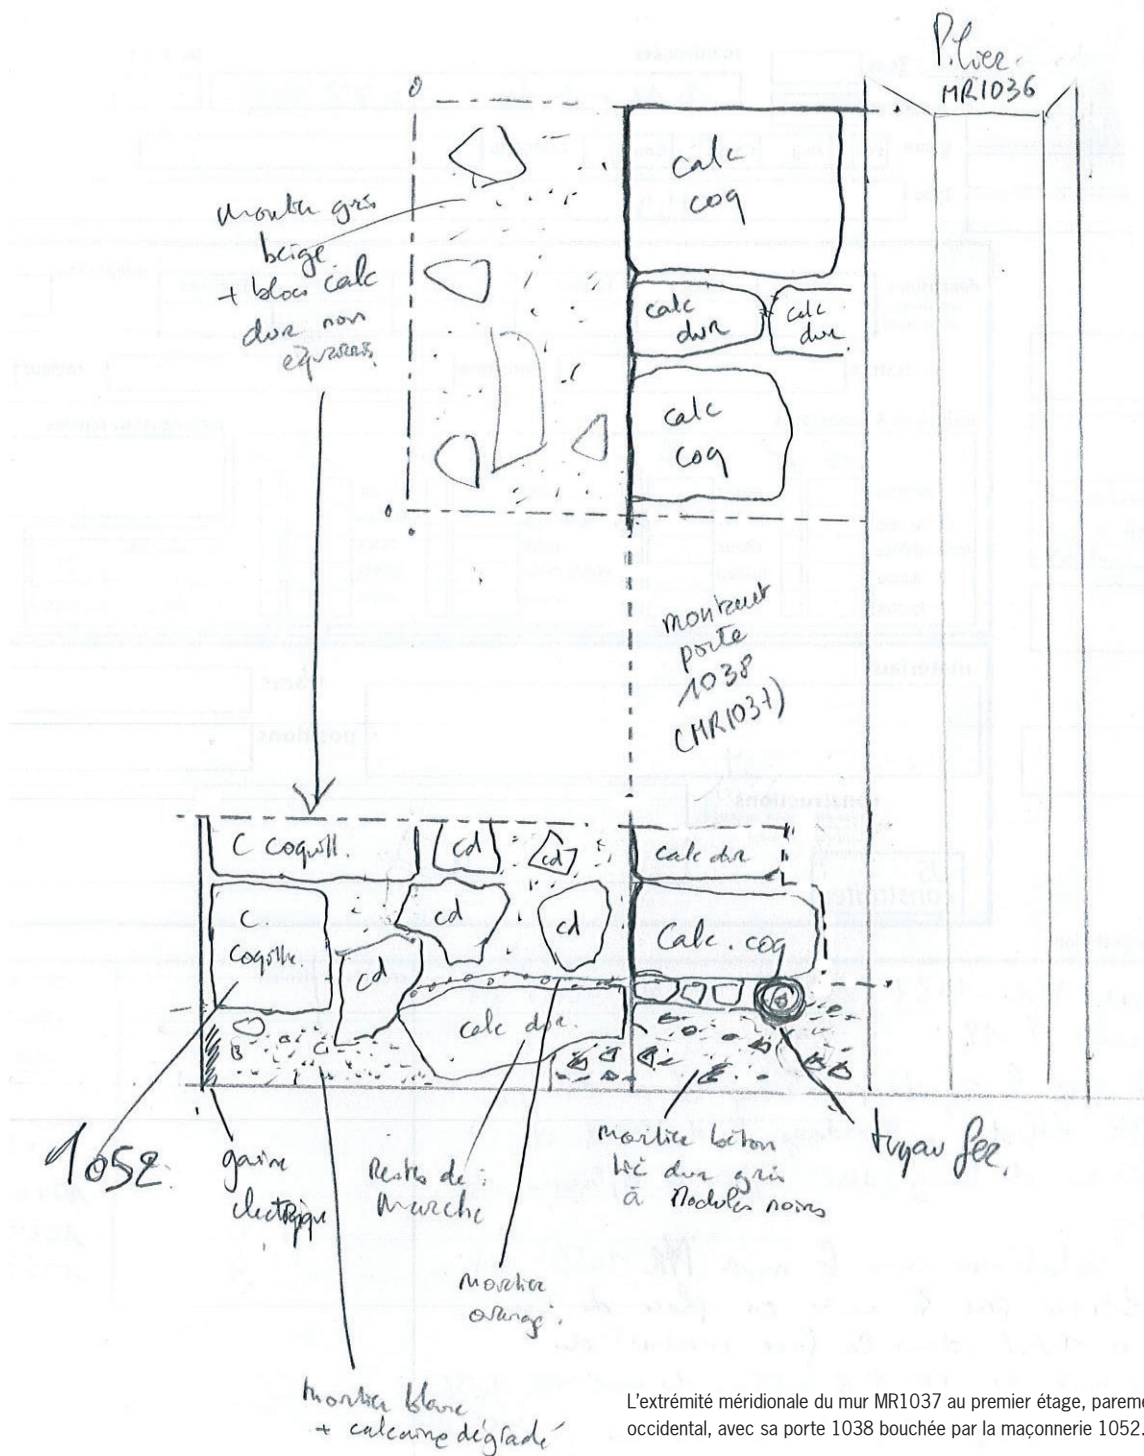 Pilier
MR1036
calc
coq
mortier gris
beige
+ blocs calc
dur non
équarris
calc
dur
calc
dur
calc
coq
montant
porte
1038
(MR1037)
C coquill.
cd
cd
calc dur
C
coquill.
cd
cd
cd
Calc. coq
calc dur.
1052.
gaine
electrique
Restes de
marche
mortier béton
très dur gris
à nodules noirs
tuyau fer.
mortier
orangé.
mortier blanc
+ calcaire dégradé
L'extrémité méridionale du mur MR1037 au premier étage, pareme
occidental, avec sa porte 1038 bouchée par la maçonnerie 1052.